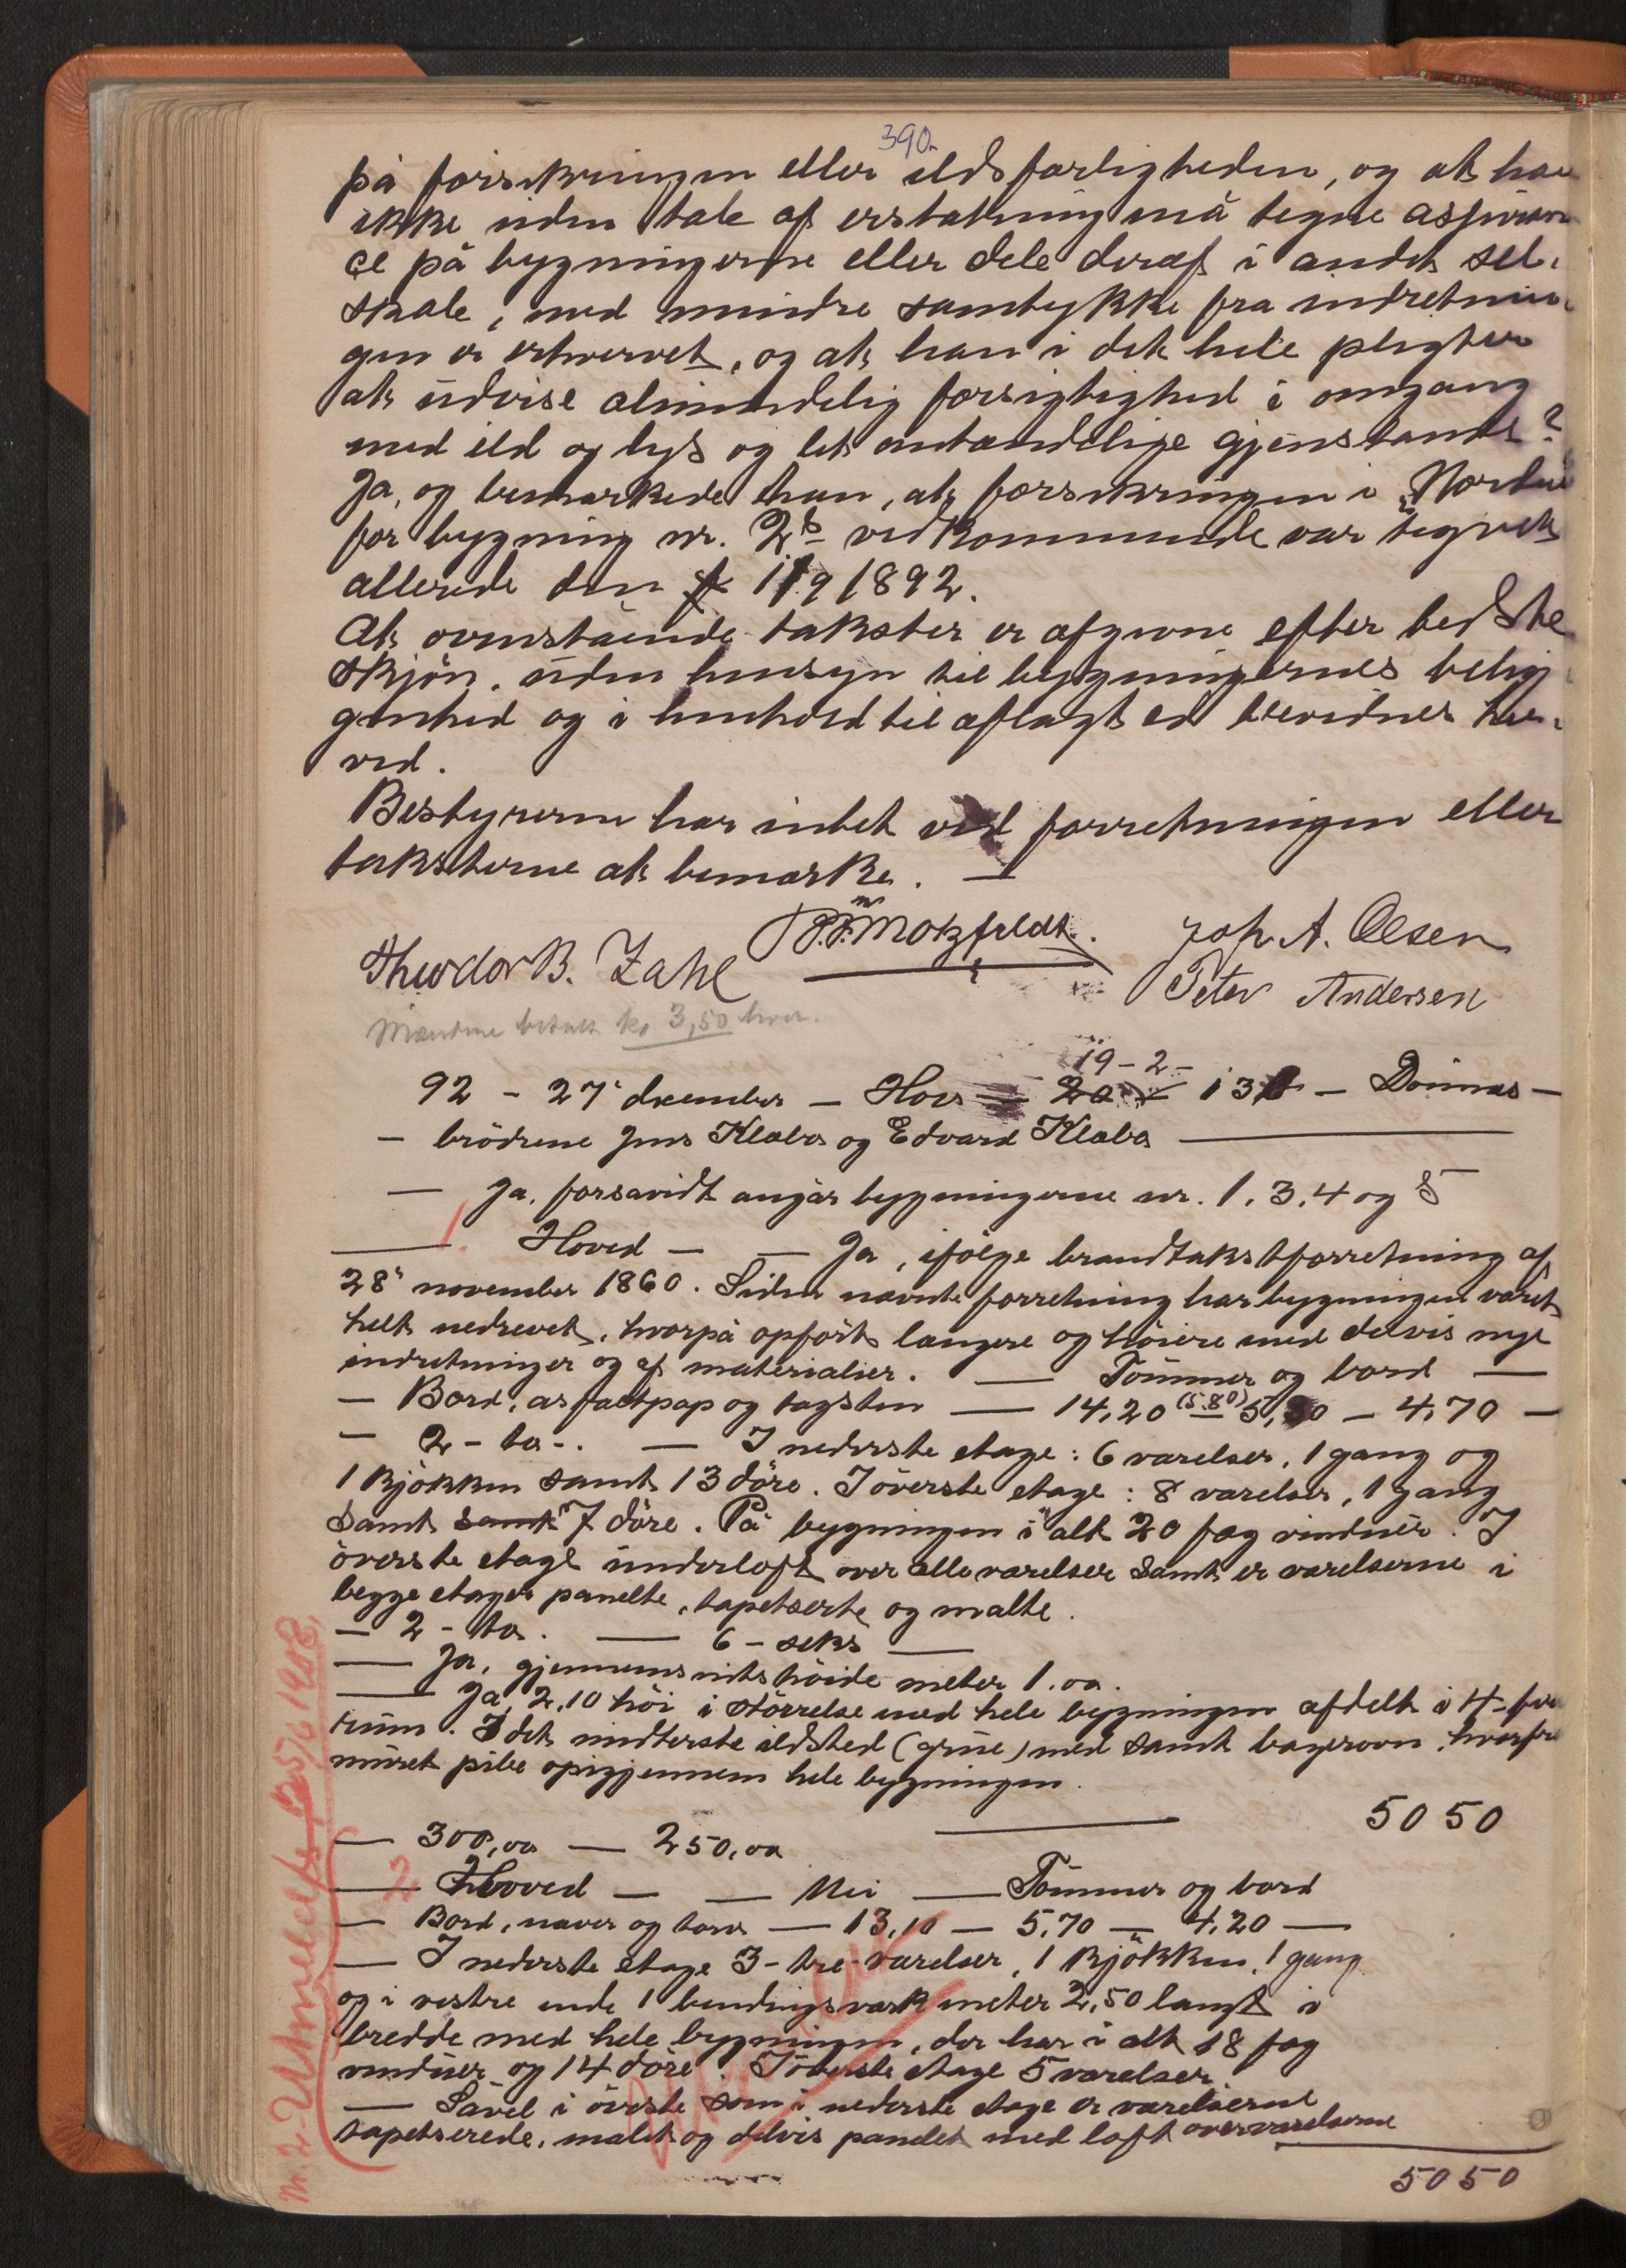 390.
på forsikringen eller ildsfarligheden, og at han
ikke uden tab af erstatning må tegne assuran
ce på bygningerne eller dele deraf i andet sel-
skab, med mindre samtykke fra indretnin-
gen er erhvervet, og at han i det hele pligter
at udvise almindelig forsigtighed i omgang
med ild og lys og let antændelige gjenstande?
Ja, og bemærkede han, at forsikringen i "Norden"
for bygning nr. 2s vedkommende var tegnet
allerede den 1/9 1892.
At ovenstående takster er afgivne efter bedste
skjön, uden hensyn til bygningernes belig-
genhed og i henhold til aflagt ed bevidnes her-
ved.
Bestyreren har intet ved forretningen eller
taksterne at bemærke. —
P. F. Motzfeldt. Joh. A. Olsen
Theodor B. Zahl Peter Andersen
Mændene betalt kr 3,50 hver.
19 - 2 -
92 - 27' december - Hov - 20 130 - Dönnes -
- brödrene Jens Klæbo og Edvard Klæbo —
— Ja, forsavidt angår bygningerne nr. 1, 3, 4 og 5
1. Hoved - — Ja, ifölge brandtakstforretning af
28' november 1860. Siden nævnte forretning har bygningen været
helt nedrevet, hvorpå opfört længere og höiere med delvis nye
indretninger og af materialier. — Tömmer og bord —
— Bord, asfaltpap og tagsten — 14,20 (5.80) — 5,80 — 4,70 —
— 2 - to -. — I nederste etage: 6 værelser, 1 gang og
1 kjökken samt 13 döre. I överste etage: 8 værelser, 1 gang
samt samt 7 döre. På bygningen i alt 20 fag vinduer. I
överste etage underloft over alle værelser samt er værelserne i
begge etager panelte, tapetserte og malte.
— 2 - to. — 6 - seks —
— Ja, gjennemsnitshöide meter 1.oo.
— Ja, 2,10 höi i störrelse med hele bygningen afdelt i 4 - fire
rum. I det midterste ildsted (grue) med samt bagerovn, hvorfra
muret pibe opigjennem hele bygningen.
5050
— 300,oo — 250,oo —
2 — Hoved — — Nei — Tömmer og bord
— Bord, never og torv — 13,10 — 5,70 — 4,20 —
— I nederste etage 3 - tre værelser, 1 kjökken, 1 gang
og i vestre ende 1 bindingsværk meter 2,50 langt i
bredde med hele bygningen, der har i alt 18 fag
vinduer og 14 döre. I överste etage 5 værelser.
— Såvel i överste som i nederste etage er værelserne
tapetserede, malet og delvis panelet med loft over værelserne
5050
Nr. 2 - Utmeldt 1908.